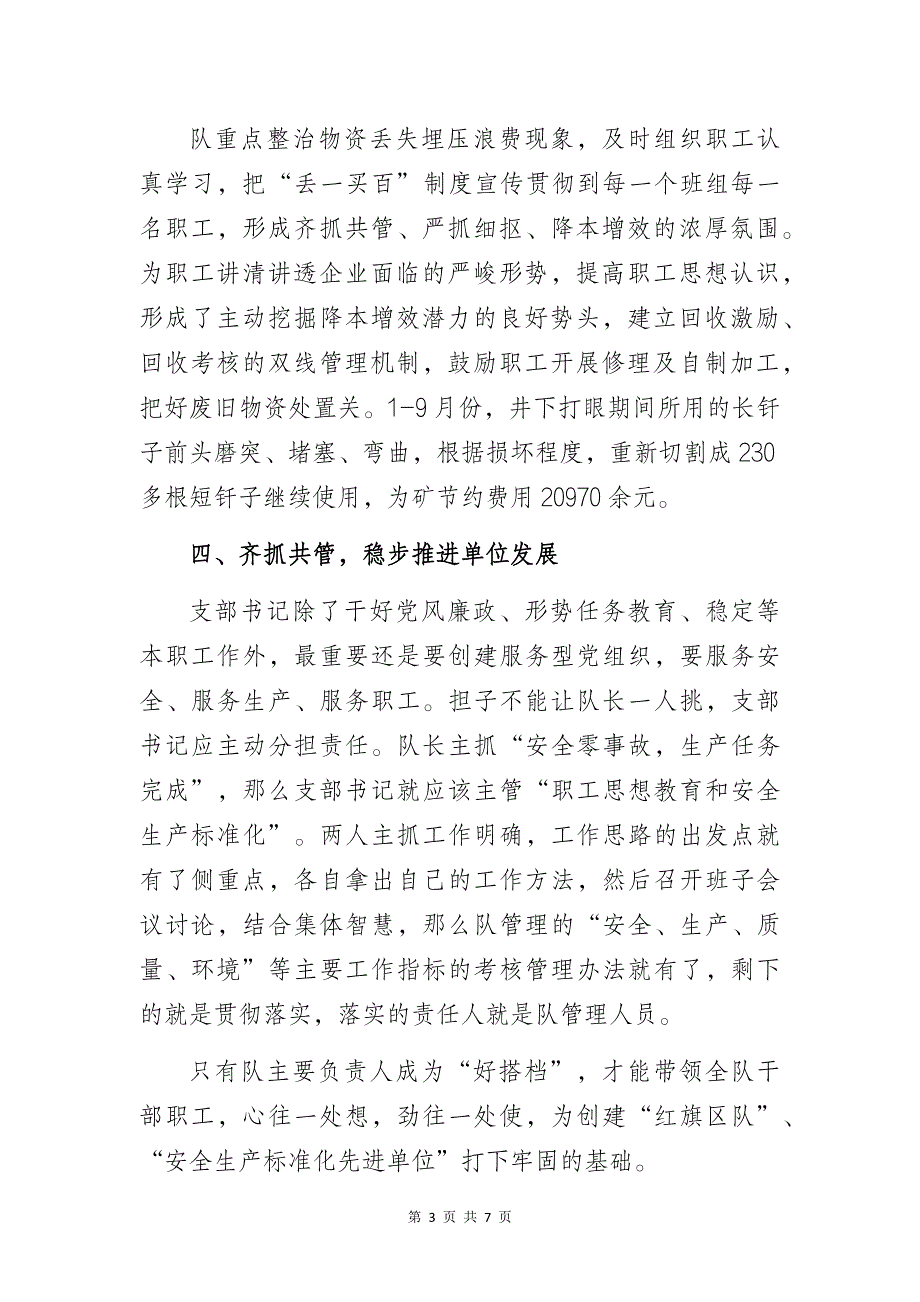 队重点整治物资丢失埋压浪费现象，及时组织职工认
真学习，把“丢一买百”制度宣传贯彻到每一个班组每一
名职工，形成齐抓共管、严抓细抠、降本增效的浓厚氛围。
为职工讲清讲透企业面临的严峻形势，提高职工思想认识，
形成了主动挖掘降本增效潜力的良好势头，建立回收激励、
回收考核的双线管理机制，鼓励职工开展修理及自制加工，
把好废旧物资处置关。1-9月份，井下打眼期间所用的长钎
子前头磨突、堵塞、弯曲，根据损坏程度，重新切割成230
多根短钎子继续使用，为矿节约费用20970余元。
四、齐抓共管，稳步推进单位发展
支部书记除了干好党风廉政、形势任务教育、稳定等
本职工作外，最重要还是要创建服务型党组织，要服务安
全、服务生产、服务职工。担子不能让队长一人挑，支部
书记应主动分担责任。队长主抓“安全零事故，生产任务
完成”，那么支部书记就应该主管“职工思想教育和安全
生产标准化”。两人主抓工作明确，工作思路的出发点就
有了侧重点，各自拿出自己的工作方法，然后召开班子会
议讨论，结合集体智慧，那么队管理的“安全、生产、质
量、环境”等主要工作指标的考核管理办法就有了，剩下
的就是贯彻落实，落实的责任人就是队管理人员。
只有队主要负责人成为“好搭档”，才能带领全队干
部职工，心往一处想，劲往一处使，为创建“红旗区队”、
“安全生产标准化先进单位”打下牢固的基础。
第 3 页 共 7 页